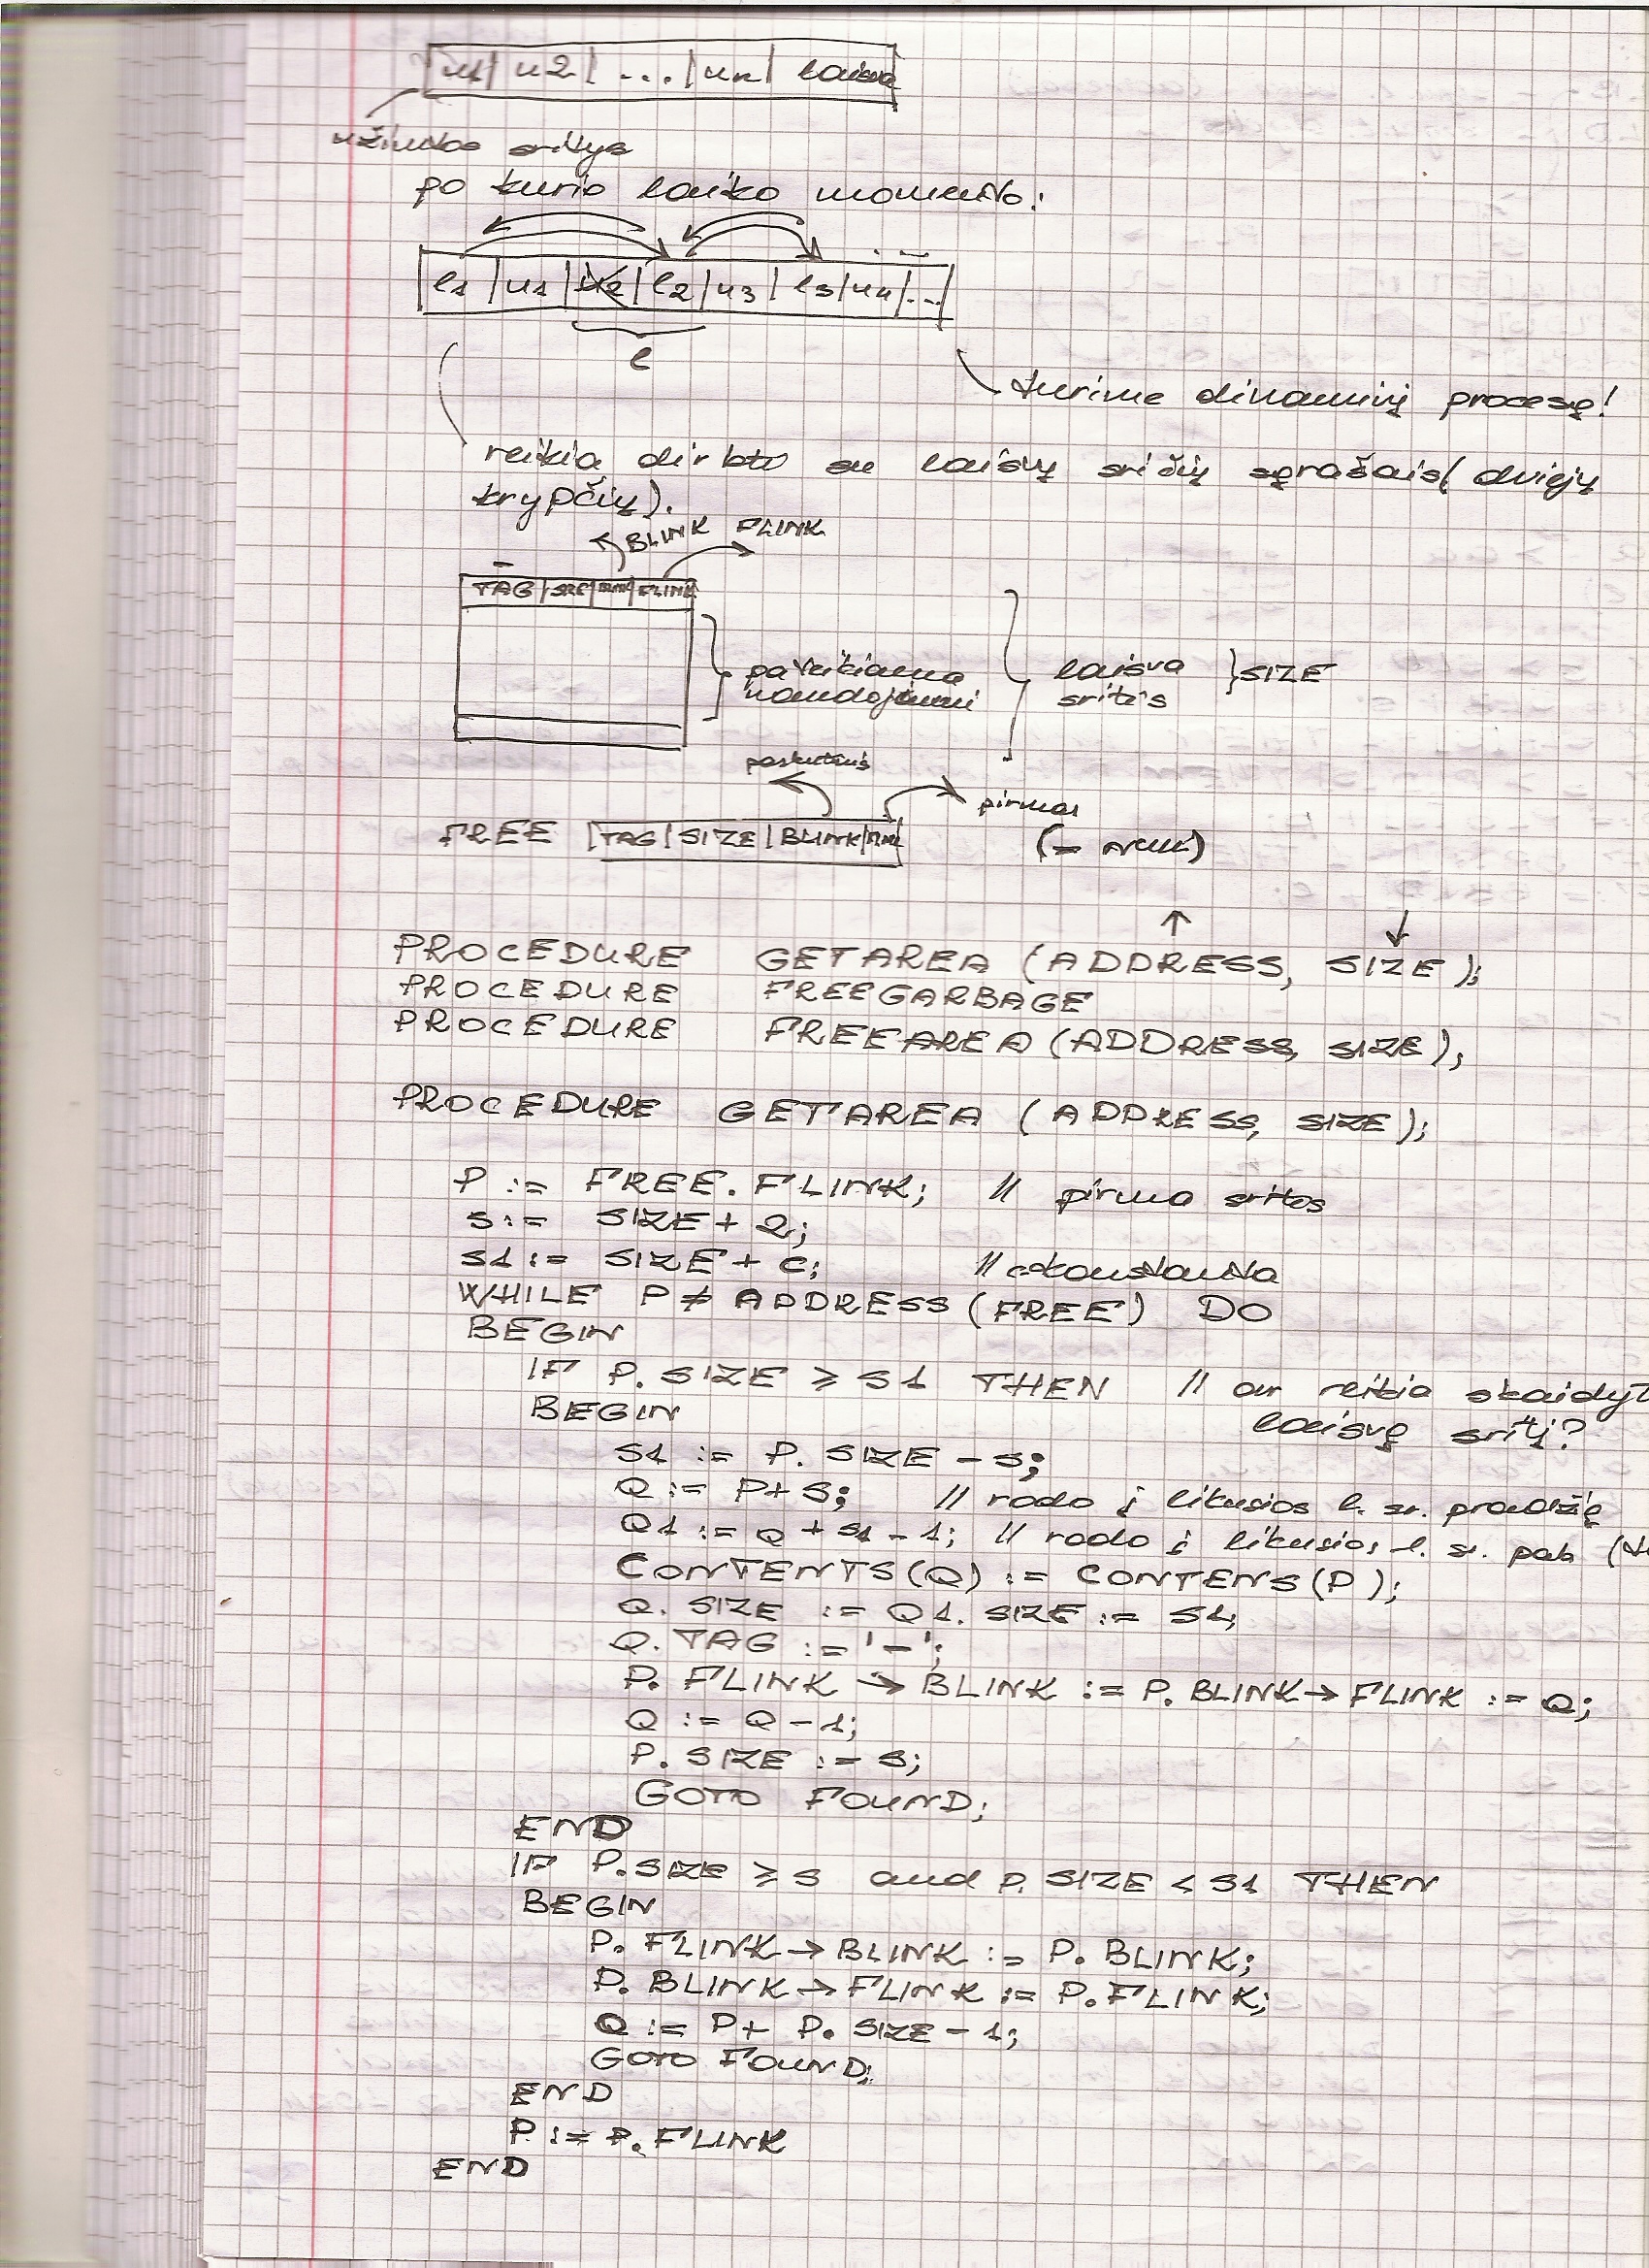 u1 | u2 | ... | un | laisva
užimtos sritys
po kurio laiko momento:
l1 | u1 | u2 | l2 | u3 | l3 | u4 | ...
l
turime dinaminį procesą!
reikia dirbti su laisvų sričių sąrašais (dviejų
krypčių).
BLINK FLINK
TAG | SIZE | BLINK | FLINK
pateikiama
naudojimui
laisva
sritis
} SIZE
paskutinis
pirmas
FREE | TAG | SIZE | BLINK | FLINK
↑ ↓
PROCEDURE GETAREA (ADDRESS, SIZE);
PROCEDURE FREEGARBAGE
PROCEDURE FREEAREA (ADDRESS, SIZE);
PROCEDURE GETAREA (ADDRESS, SIZE);
P := FREE.FLINK; // pirma sritis
S := SIZE + 2;
S1 := SIZE + C; // c-konstanta
WHILE P ≠ ADDRESS (FREE) DO
BEGIN
IF P.SIZE ≥ S1 THEN // ar reikia skaidyt
laisvą sritį?
BEGIN
S1 := P.SIZE - S;
Q := P + S; // rodo į likusios l. sr. pradžią
Q1 := Q + S1 - 1; // rodo į likusios l. sr. pab
CONTENTS(Q) := CONTENS(P);
Q.SIZE := Q1.SIZE := S1;
Q.TAG := '-';
P.FLINK → BLINK := P.BLINK → FLINK := Q;
Q := Q - 1;
P.SIZE := S;
GOTO FOUND;
END
IF P.SIZE ≥ S and P.SIZE < S1 THEN
BEGIN
P.FLINK → BLINK := P.BLINK;
P.BLINK → FLINK := P.FLINK;
Q := P + P.SIZE - 1;
GOTO FOUND;
END
P := P.FLINK
END